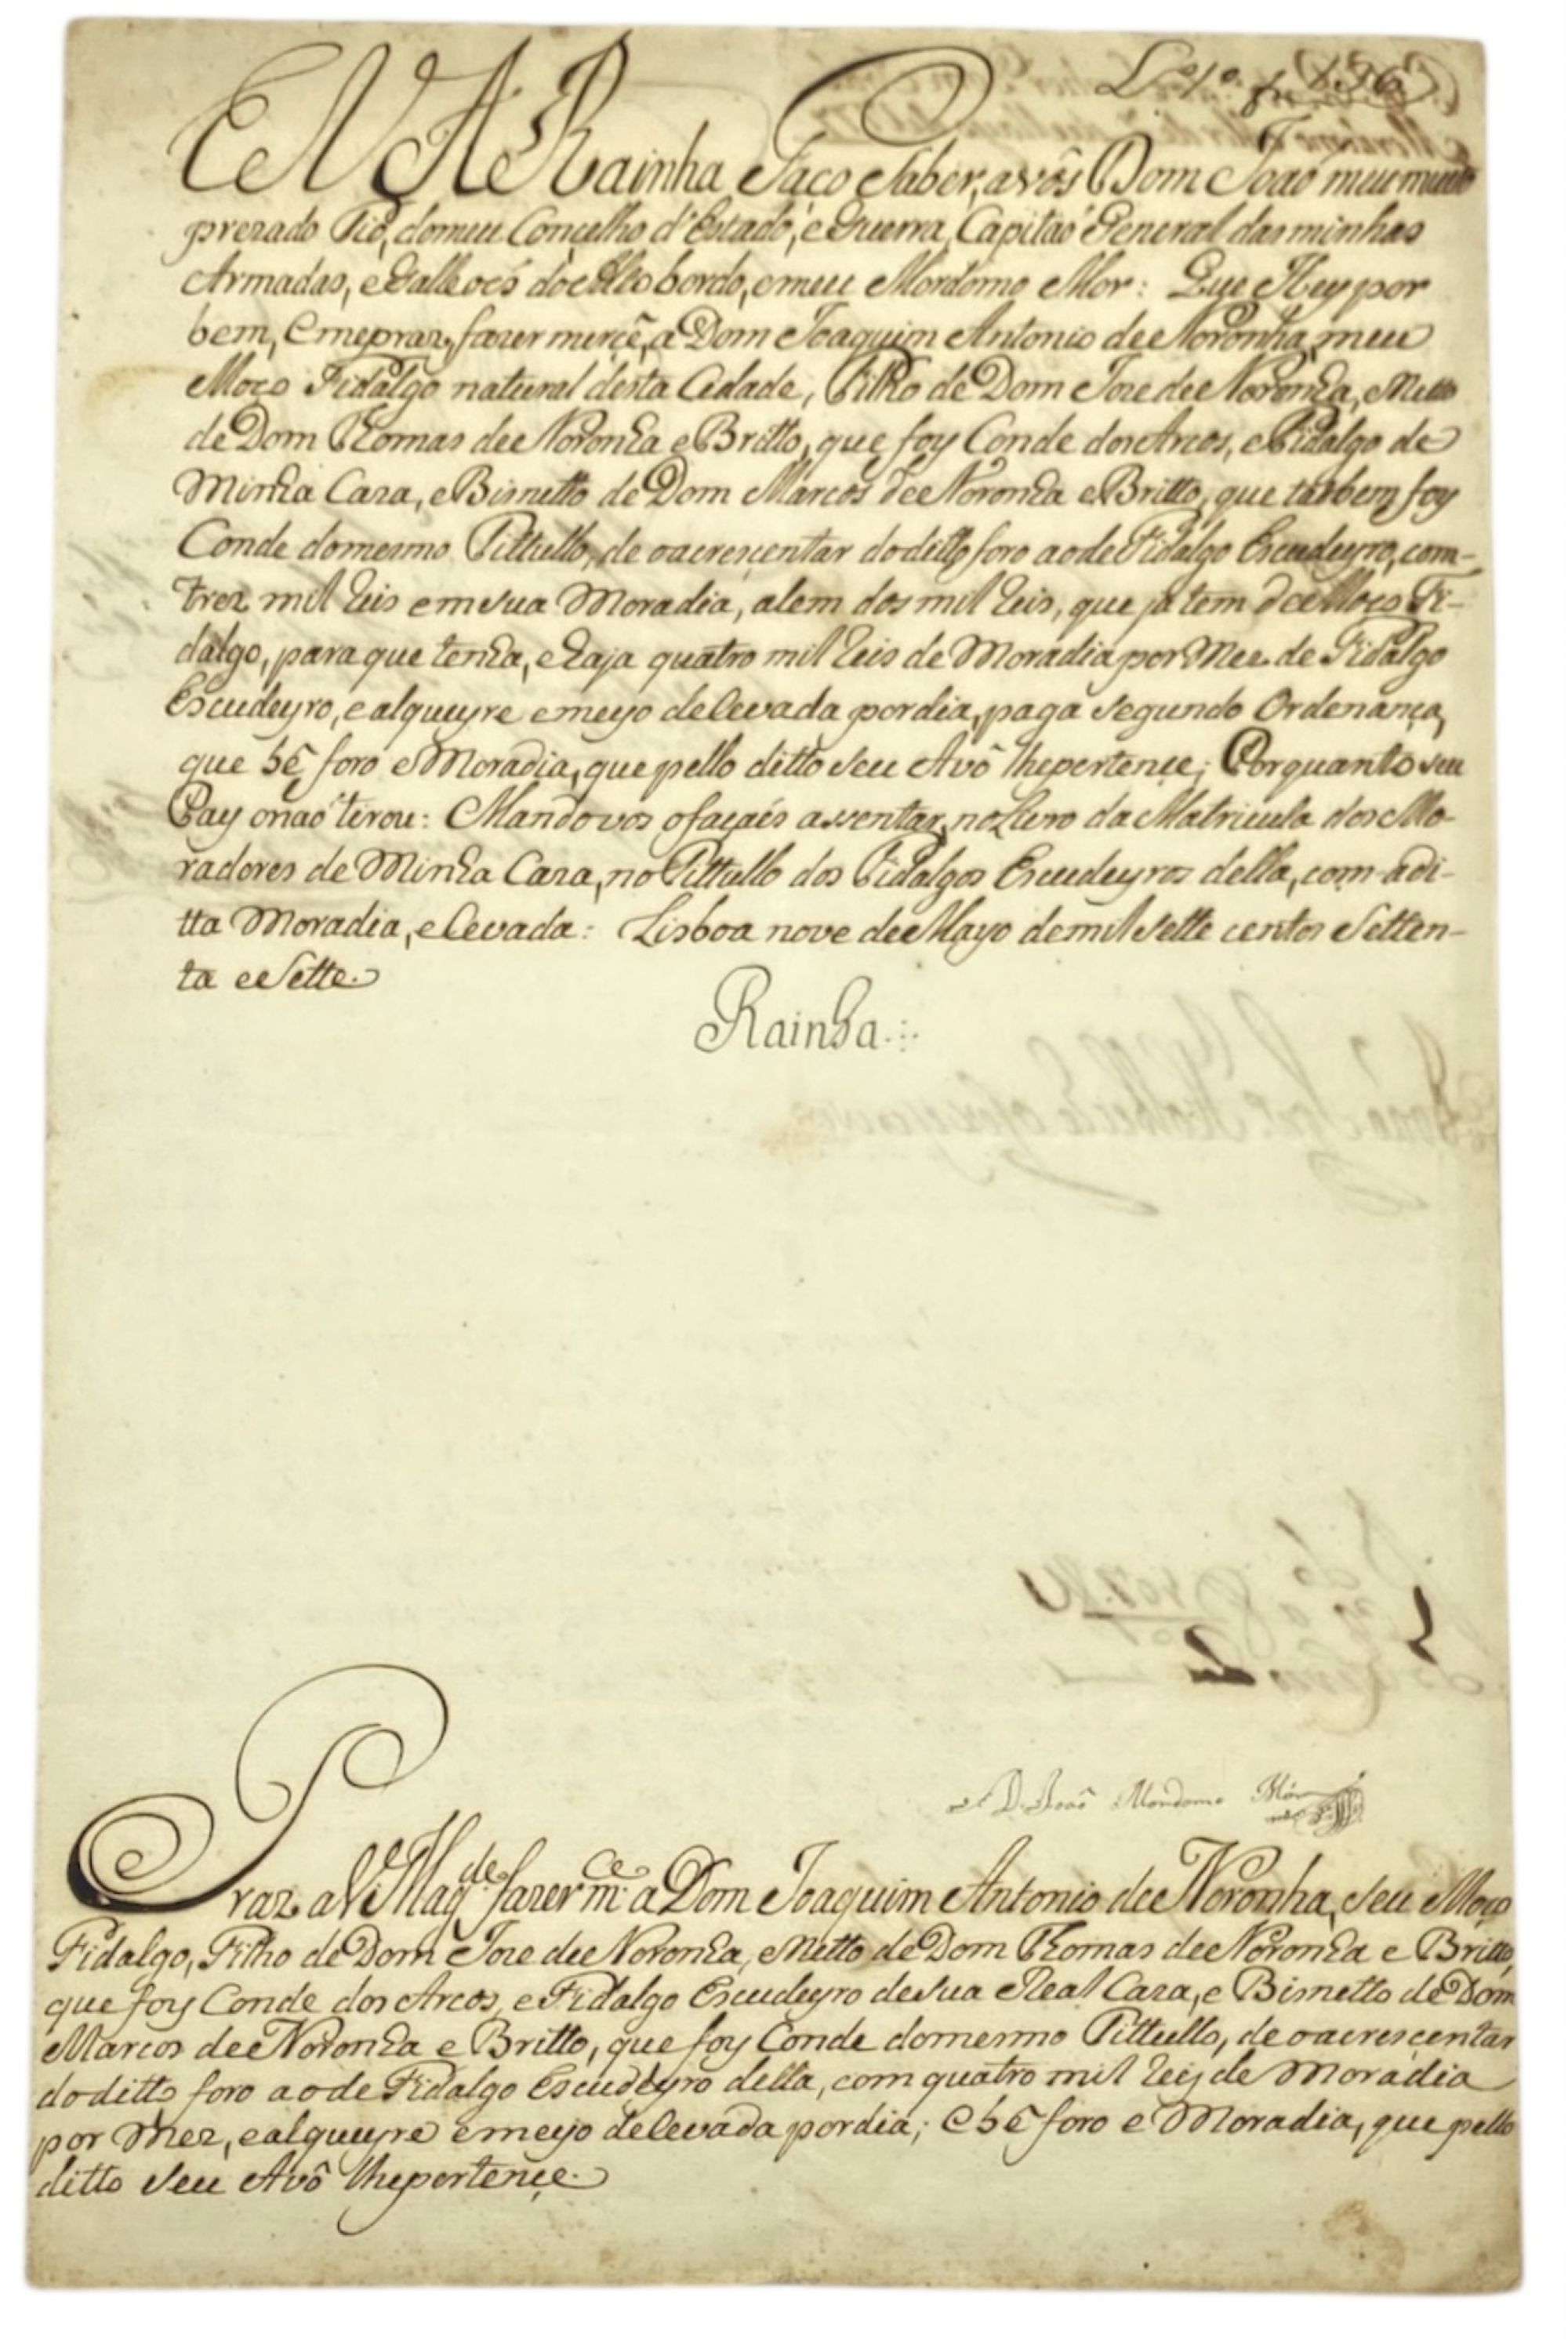 Lº 1º. f 136
EV A Rainha Faço Saber, a vós Dom João meu muito
prezado Tio, do meu Conçelho d'Estado, e Guerra, Capitão General das minhas
Armadas, e Galleoés do Alto bordo, e meu Mordomo Mor: Que Hey por
bem, e me praz, fazer merçê, a Dom Joaquim Antonio de Noronha, meu
Moço Fidalgo natural desta Cidade, Filho de Dom Joze de Noronha, e Netto
de Dom Thomas de Noronha e Britto, que foy Conde dos Arcos, e Fidalgo de
Minha Caza, e Bisnetto de Dom Marcos de Noronha e Britto, que tãobem foy
Conde do mesmo Tittullo, de o acresçentar do ditto foro ao de Fidalgo Escudeyro, com-
trez mil reis em sua Moradia, alem dos mil reis, que já tem de Moço Fi-
dalgo, para que tenha, e haja quatro mil reis de Moradia por Mez de Fidalgo
Escudeyro, e alqueyre e meyo de Cevada por dia, paga segundo Ordenança,
que hê foro e Moradia, que pello ditto seu Avô lhe pertençe; Porquanto seu
Pay o naõ tirou: Mando vos o façaés assentar, no Livro da Matricula dos Mo-
radores de Minha Caza, no Tittullo dos Fidalgos Escudeyros della, com a di-
tta Moradia, e Cevada: Lisboa nove de Mayo de mil sette centos Setten-
ta e Sette.
Rainha
D. Joaõ Mordomo Mór
Praz a V. Magde. fazer mce. a Dom Joaquim Antonio de Noronha, seu Moço
Fidalgo, Filho de Dom Joze de Noronha, e Netto de Dom Thomas de Noronha e Britto,
que foy Conde dos Arcos, e Fidalgo Escudeyro de sua Real Caza, e Bisnetto de Dom
Marcos de Noronha e Britto, que foy Conde do mesmo Tittullo, de o acresçentar
do ditto foro ao de Fidalgo Escudeyro della, com quatro mil reis de Moradia
por Mez, e alqueyre e meyo de Cevada por dia; e hê foro e Moradia, que pello
ditto seu Avô lhe pertençe.